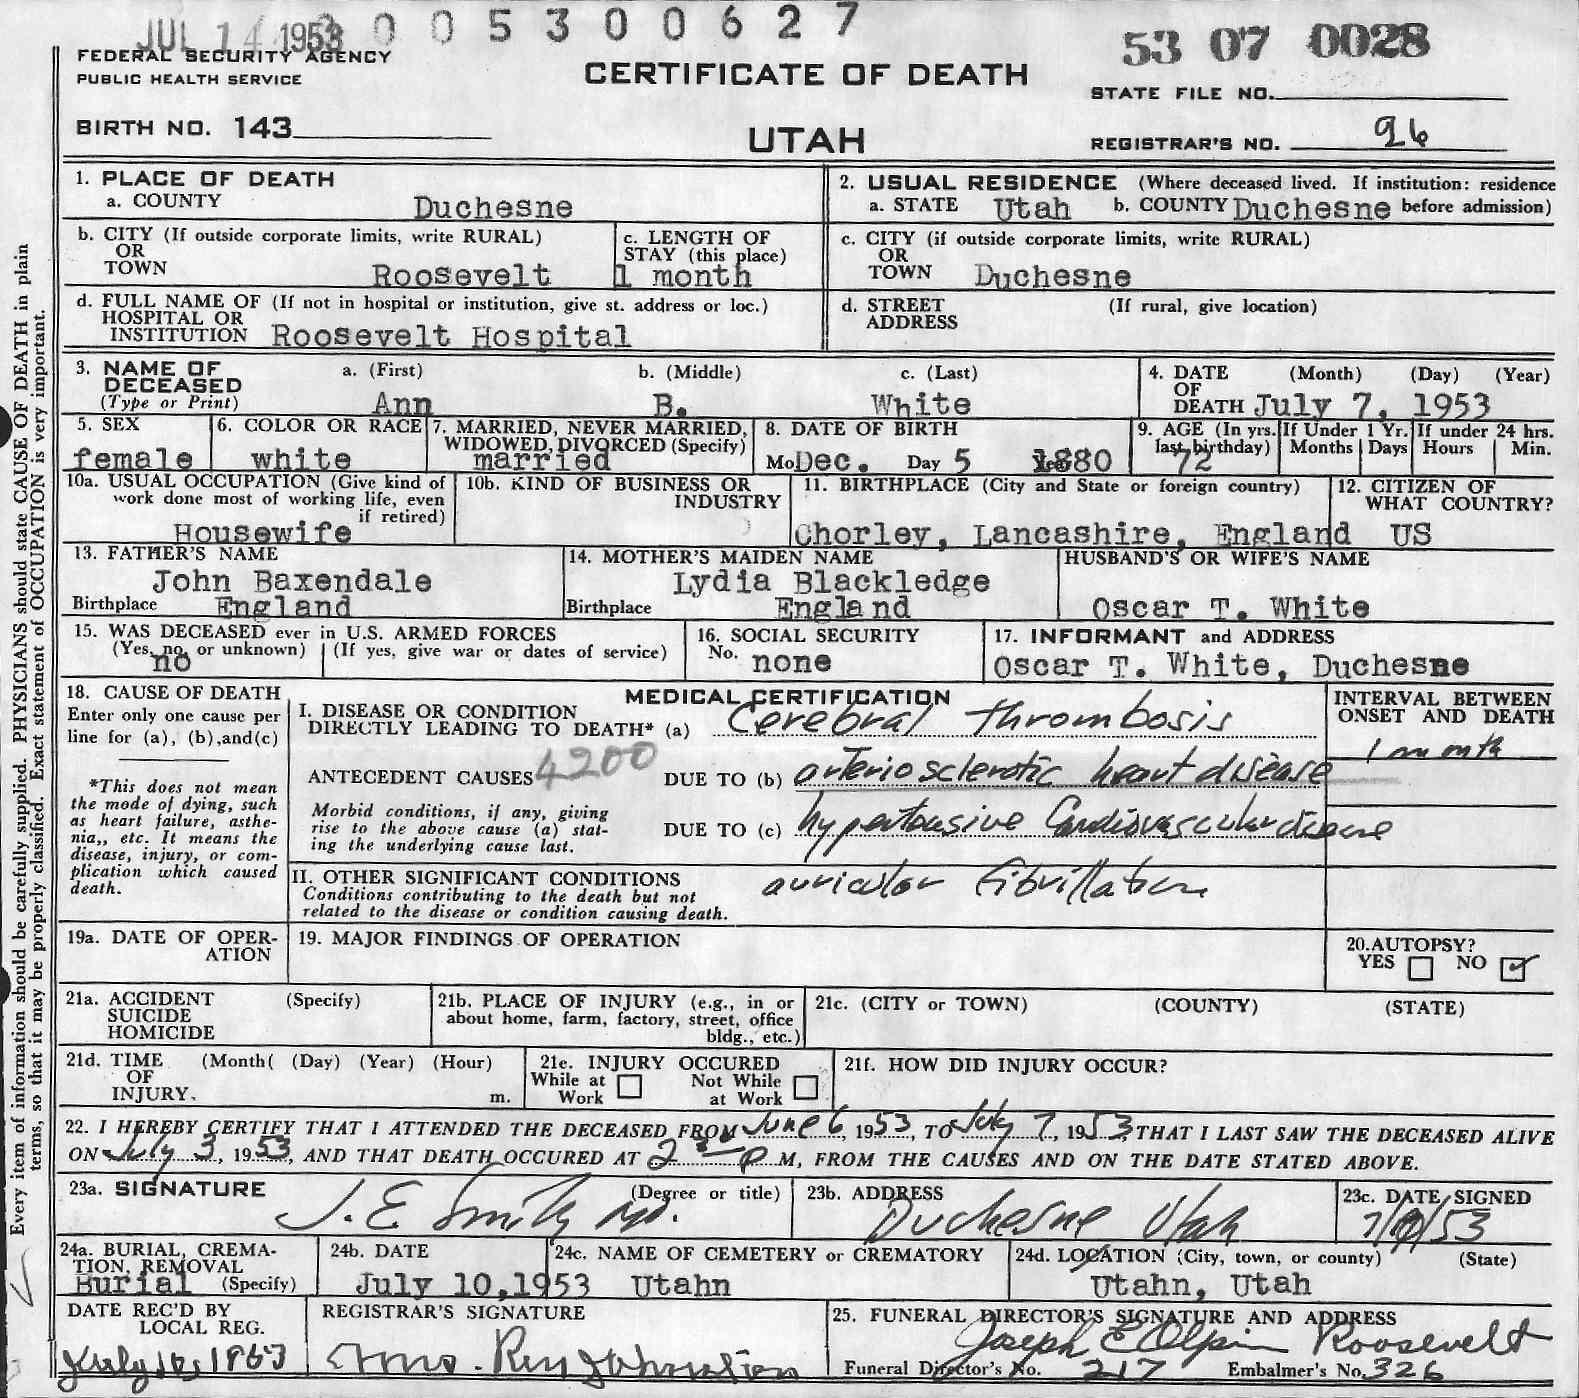 JUL 14 1953
0 0 5 3 0 0 6 2 7
53 07 0028
FEDERAL SECURITY AGENCY
PUBLIC HEALTH SERVICE
CERTIFICATE OF DEATH
STATE FILE NO.
BIRTH NO. 143
UTAH
REGISTRAR'S NO. 96
1. PLACE OF DEATH
a. COUNTY Duchesne
2. USUAL RESIDENCE (Where deceased lived. If institution: residence
a. STATE Utah b. COUNTY Duchesne before admission)
b. CITY (If outside corporate limits, write RURAL)
OR
TOWN Roosevelt
c. LENGTH OF
STAY (this place)
1 month
c. CITY (if outside corporate limits, write RURAL)
OR
TOWN Duchesne
d. FULL NAME OF (If not in hospital or institution, give st. address or loc.)
HOSPITAL OR
INSTITUTION Roosevelt Hospital
d. STREET (If rural, give location)
ADDRESS
3. NAME OF a. (First) b. (Middle) c. (Last)
DECEASED
(Type or Print) Ann B. White
4. DATE (Month) (Day) (Year)
OF
DEATH July 7, 1953
5. SEX
female
6. COLOR OR RACE
white
7. MARRIED, NEVER MARRIED,
WIDOWED, DIVORCED (Specify)
married
8. DATE OF BIRTH
Mo Dec. Day 5 1880
9. AGE (In yrs.
last birthday)
72
If Under 1 Yr.
Months Days
If under 24 hrs.
Hours Min.
10a. USUAL OCCUPATION (Give kind of
work done most of working life, even
if retired)
Housewife
10b. KIND OF BUSINESS OR
INDUSTRY
11. BIRTHPLACE (City and State or foreign country)
Chorley, Lancashire, England
12. CITIZEN OF
WHAT COUNTRY?
US
13. FATHER'S NAME
John Baxendale
Birthplace England
14. MOTHER'S MAIDEN NAME
Lydia Blackledge
Birthplace England
HUSBAND'S OR WIFE'S NAME
Oscar T. White
15. WAS DECEASED ever in U.S. ARMED FORCES
(Yes, no, or unknown) (If yes, give war or dates of service)
no
16. SOCIAL SECURITY
No. none
17. INFORMANT and ADDRESS
Oscar T. White, Duchesne
18. CAUSE OF DEATH
Enter only one cause per
line for (a), (b),and(c)
*This does not mean
the mode of dying, such
as heart failure, asthe-
nia,, etc. It means the
disease, injury, or com-
plication which caused
death.
MEDICAL CERTIFICATION
I. DISEASE OR CONDITION
DIRECTLY LEADING TO DEATH* (a) Cerebral thrombosis
ANTECEDENT CAUSES 4200 DUE TO (b) arterio sclerotic heart disease
Morbid conditions, if any, giving
rise to the above cause (a) stat-
ing the underlying cause last.
DUE TO (c) hypertensive Cardiovascular disease
INTERVAL BETWEEN
ONSET AND DEATH
1 month
II. OTHER SIGNIFICANT CONDITIONS
Conditions contributing to the death but not
related to the disease or condition causing death.
auricular fibrillation
19a. DATE OF OPER-
ATION
19. MAJOR FINDINGS OF OPERATION
20. AUTOPSY?
YES NO ✓
21a. ACCIDENT (Specify)
SUICIDE
HOMICIDE
21b. PLACE OF INJURY (e.g., in or
about home, farm, factory, street, office
bldg., etc.)
21c. (CITY or TOWN) (COUNTY) (STATE)
21d. TIME (Month( (Day) (Year) (Hour)
OF
INJURY. m.
21e. INJURY OCCURED
While at Work Not While at Work
21f. HOW DID INJURY OCCUR?
22. I HEREBY CERTIFY THAT I ATTENDED THE DECEASED FROM June 6, 1953, TO July 7, 1953, THAT I LAST SAW THE DECEASED ALIVE
ON July 3, 1953, AND THAT DEATH OCCURED AT 2 P M, FROM THE CAUSES AND ON THE DATE STATED ABOVE.
23a. SIGNATURE (Degree or title)
J. E. Smith MD.
23b. ADDRESS
Duchesne Utah
23c. DATE SIGNED
24a. BURIAL, CREMA-
TION, REMOVAL
Burial (Specify)
24b. DATE
July 10, 1953
24c. NAME OF CEMETERY or CREMATORY
Utahn
24d. LOCATION (City, town, or county) (State)
Utahn, Utah
DATE REC'D BY
LOCAL REG.
July 1953
REGISTRAR'S SIGNATURE
Mrs. Johnston
25. FUNERAL DIRECTOR'S SIGNATURE AND ADDRESS
Joseph E Olpin Roosevelt
Funeral Director's No. 217 Embalmer's No. 326
Every item of information should be carefully supplied. PHYSICIANS should state CAUSE OF DEATH in plain
terms, so that it may be properly classified. Exact statement of OCCUPATION is very important.